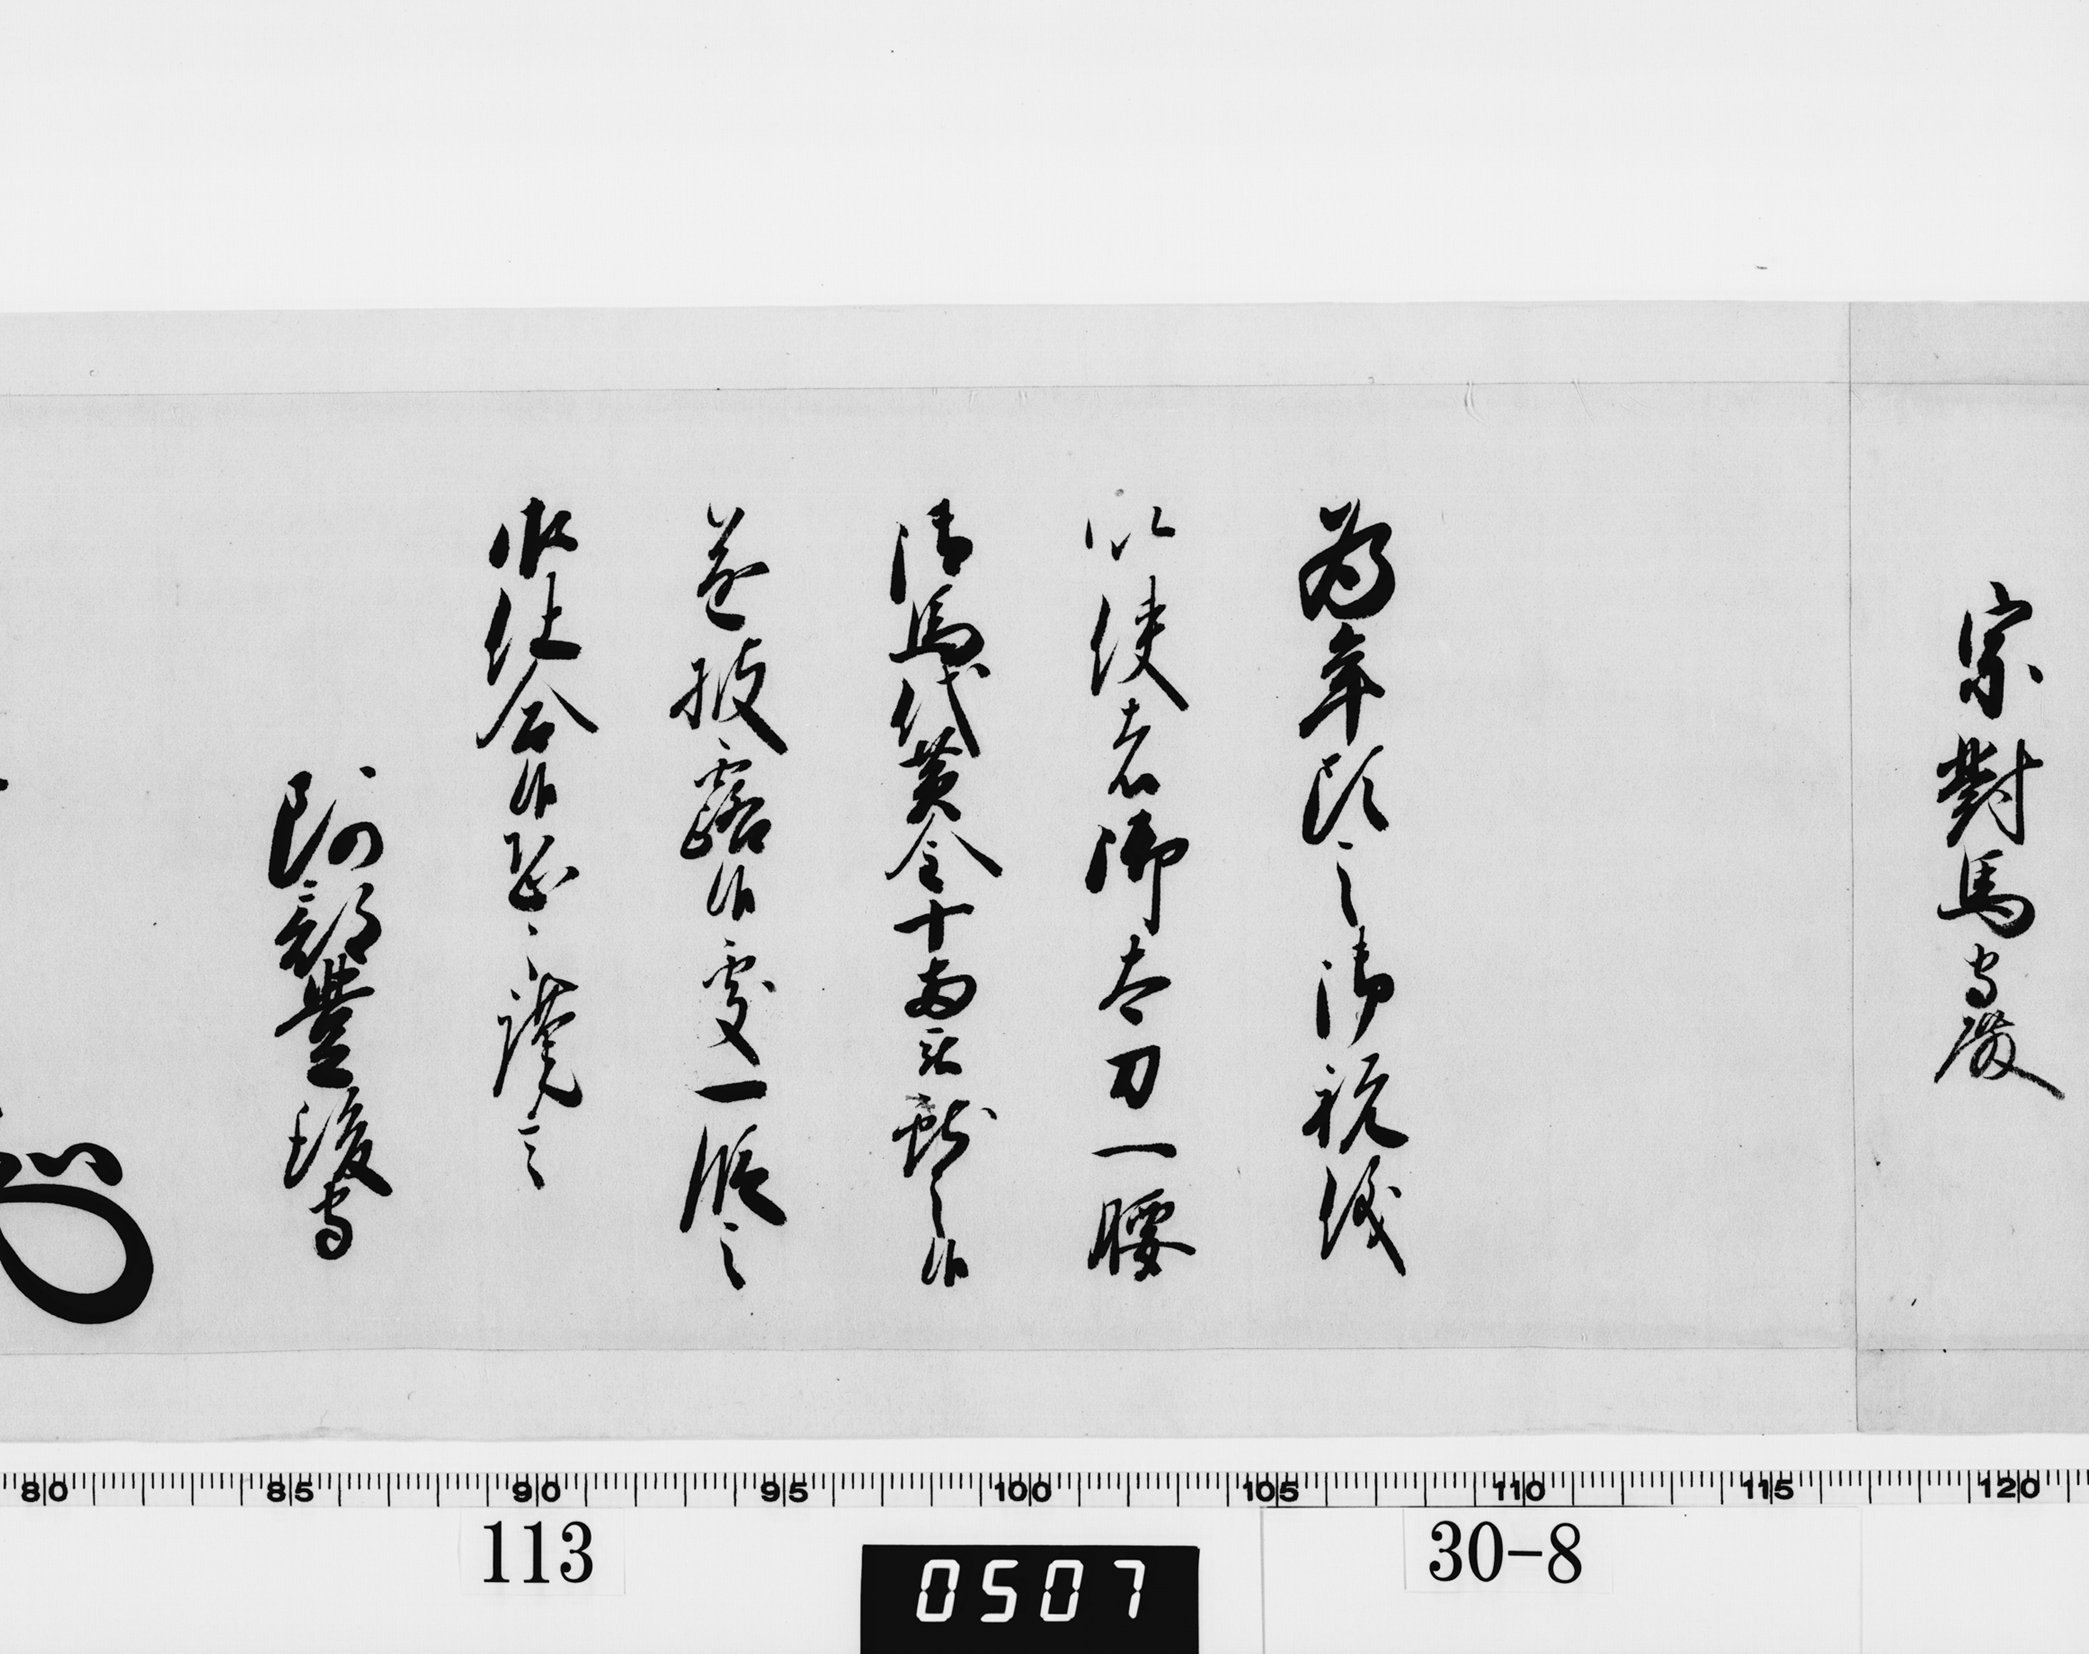 宗對馬守殿
為年頭之御祝儀
以使者御太刀一腰
御馬代黄金十両被獻之候
遂披露候處一段之
御仕合候恐々謹言
阿部豊後守
80 85 90 95 100 105 110 115 120
113
0507
30-8